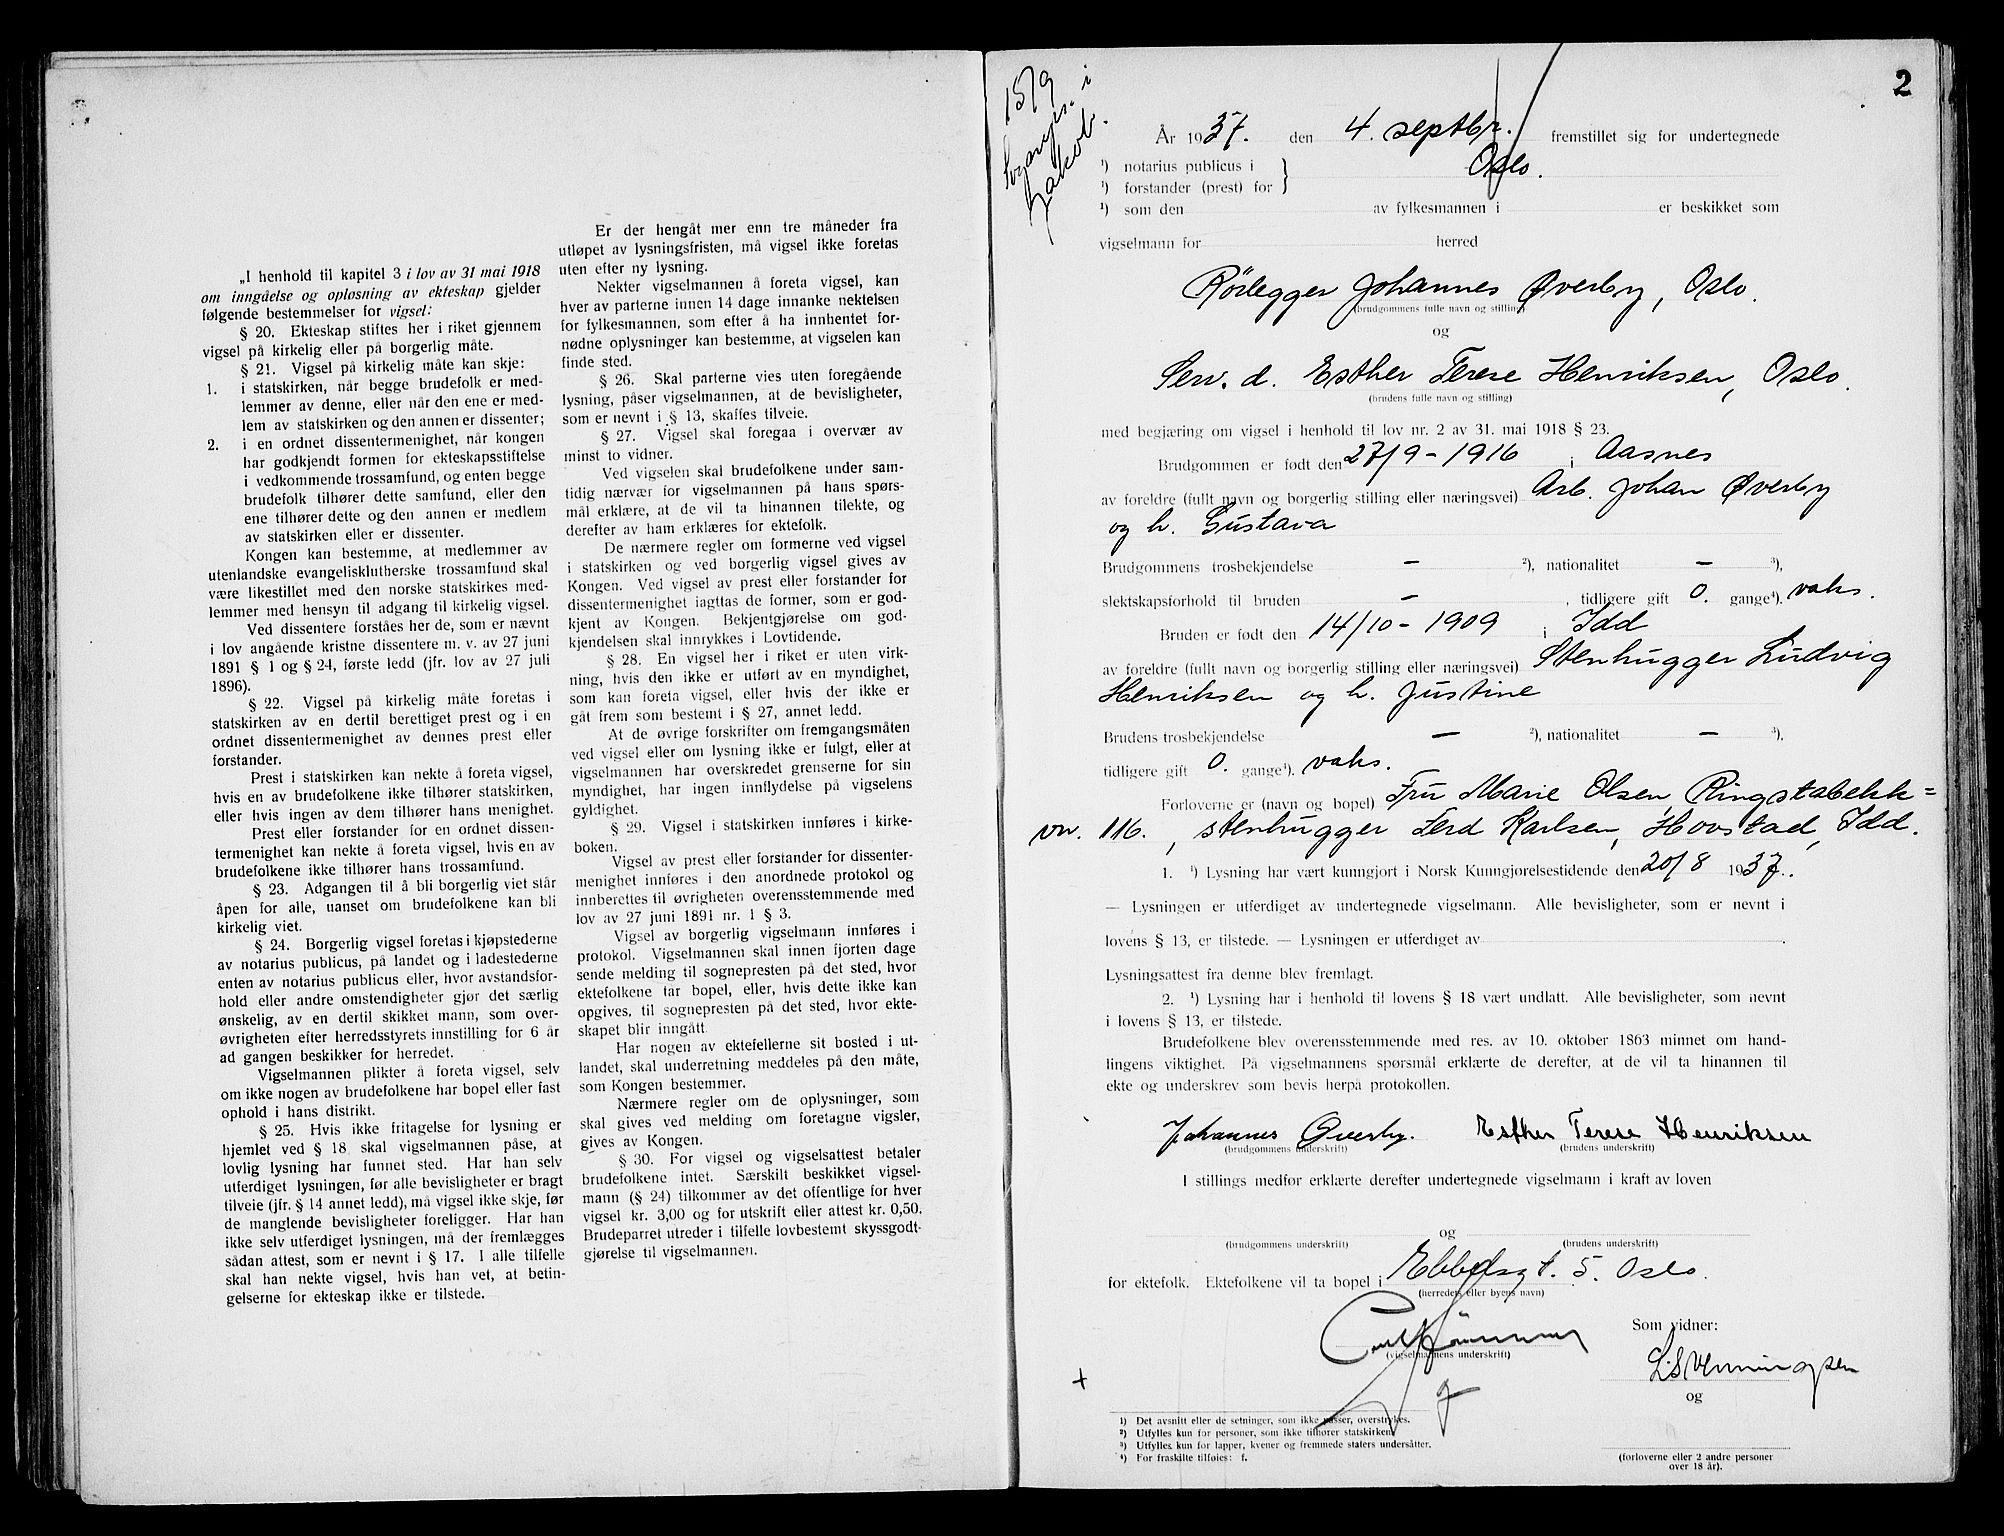 „I henhold til kapitel 3 i lov av 31 mai 1918
om inngåelse og opløsning av ekteskap gjelder
følgende bestemmelser for vigsel:
§ 20. Ekteskap stiftes her i riket gjennem
vigsel på kirkelig eller på borgerlig måte.
§ 21. Vigsel på kirkelig måte kan skje:
1. i statskirken, når begge brudefolk er med-
lemmer av denne, eller når den ene er med-
lem av statskirken og den annen er dissenter;
2. i en ordnet dissentermenighet, når kongen
har godkjendt formen for ekteskapsstiftelse
i vedkommende trossamfund, og enten begge
brudefolk tilhører dette samfund, eller den
ene tilhører dette og den annen er medlem
av statskirken eller er dissenter.
Kongen kan bestemme, at medlemmer av
utenlandske evangelisklutherske trossamfund skal
være likestillet med den norske statskirkes med-
lemmer med hensyn til adgang til kirkelig vigsel.
Ved dissentere forståes her de, som er nævnt
i lov angående kristne dissentere m. v. av 27 juni
1891 § 1 og § 24, første ledd (jfr. lov av 27 juli
1896).
§ 22. Vigsel på kirkelig måte foretas i
statskirken av en dertil berettiget prest og i en
ordnet dissentermenighet av dennes prest eller
forstander.
Prest i statskirken kan nekte å foreta vigsel,
hvis en av brudefolkene ikke tilhører statskirken,
eller hvis ingen av dem tilhører hans menighet.
Prest eller forstander for en ordnet dissen-
termenighet kan nekte å foreta vigsel, hvis en av
brudefolkene ikke tilhører hans trossamfund.
§ 23. Adgangen til å bli borgerlig viet står
åpen for alle, uanset om brudefolkene kan bli
kirkelig viet.
§ 24. Borgerlig vigsel foretas i kjøpstederne
av notarius publicus, på landet og i ladestederne
enten av notarius publicus eller, hvor avstandsfor-
hold eller andre omstendigheter gjør det særlig
ønskelig, av en dertil skikket mann, som over-
øvrigheten efter herredsstyrets innstilling for 6 år
ad gangen beskikker for herredet.
Vigselmannen plikter å foreta vigsel, selv
om ikke nogen av brudefolkene har bopel eller fast
ophold i hans distrikt.
§ 25. Hvis ikke fritagelse for lysning er
hjemlet ved § 18 skal vigselmannen påse, at
lovlig lysning har funnet sted. Har han selv
utferdiget lysningen, før alle bevisligheter er bragt
tilveie (jfr. § 14 annet ledd), må vigsel ikke skje, før
de manglende bevisligheter foreligger. Har han
ikke selv utferdiget lysningen, må der fremlægges
sådan attest, som er nevnt i § 17. I alle tilfelle
skal han nekte vigsel, hvis han vet, at betin-
gelserne for ekteskap ikke er tilstede.
Er der hengåt mer enn tre måneder fra
utløpet av lysningsfristen, må vigsel ikke foretas
uten efter ny lysning.
Nekter vigselmannen å foreta vigsel, kan
hver av parterne innen 14 dage innanke nektelsen
for fylkesmannen, som efter å ha innhentet for-
nødne oplysninger kan bestemme, at vigselen kan
finde sted.
§ 26. Skal parterne vies uten foregående
lysning, påser vigselmannen, at de bevisligheter,
som er nevnt i § 13, skaffes tilveie.
§ 27. Vigsel skal foregaa i overvær av
minst to vidner.
Ved vigselen skal brudefolkene under sam-
tidig nærvær for vigselmannen på hans spørs-
mål erklære, at de vil ta hinannen tilekte, og
derefter av ham erklæres for ektefolk.
De nærmere regler om formerne ved vigsel
i statskirken og ved borgerlig vigsel gives av
Kongen. Ved vigsel av prest eller forstander for
dissentermenighet iagttas de former, som er god-
kjent av Kongen. Bekjentgjørelse om god-
kjendelsen skal innrykkes i Lovtidende.
§ 28. En vigsel her i riket er uten virk-
ning, hvis den ikke er utført av en myndighet,
som kan foreta vigsel, eller hvis der ikke er
gåt frem som bestemt i § 27, annet ledd.
At de øvrige forskrifter om fremgangsmåten
ved vigsel eller om lysning ikke er fulgt, eller at
vigselmannen har overskredet grenserne for sin
myndighet, har ingen innflydelse på vigselens
gyldighet.
§ 29. Vigsel i statskirken innføres i kirke-
boken.
Vigsel av prest eller forstander for dissenter-
menighet innføres i den anordnede protokol og
innberettes til øvrigheten overensstemmende med
lov av 27 juni 1891 nr. 1 § 3.
Vigsel av borgerlig vigselmann innføres i
protokol. Vigselmannen skal innen fjorten dage
sende melding til sognepresten på det sted, hvor
ektefolkene tar bopel, eller, hvis dette ikke kan
opgives, til sognepresten på det sted, hvor ekte-
skapet blir inngått.
Har nogen av ektefellerne sit bosted i ut-
landet, skal underretning meddeles på den måte,
som Kongen bestemmer.
Nærmere regler om de oplysninger, som
skal gives ved melding om foretagne vigsler,
gives av Kongen.
§ 30. For vigsel og vigselsattest betaler
brudefolkene intet. Særskilt beskikket vigsel-
mann (§ 24) tilkommer av det offentlige for hver
vigsel kr. 3,00 og for utskrift eller attest kr. 0,50.
Brudeparret utreder i tilfelle lovbestemt skyssgodt-
gjørelse til vigselmannen.
2
15/9
i
Jakob.
År 1937. den 4. septbr. fremstillet sig for undertegnede
¹) notarius publicus i
¹) forstander (prest) for } Oslo.
¹) som den av fylkesmannen i er beskikket som
vigselmann for herred
Rørlegger Johannes Øverby, Oslo.
(brudgommens fulle navn og stilling)
og
Serv.d. Esther Terese Henriksen, Oslo.
(brudens fulle navn og stilling)
med begjæring om vigsel i henhold til lov nr. 2 av 31. mai 1918 § 23.
Brudgommen er født den 27/9 - 1916 i Aasnes
av foreldre (fullt navn og borgerlig stilling eller næringsvei) Arb. Johan Øverby
og h. Gustava
Brudgommens trosbekjendelse - ²), nationalitet - ³),
slektskapsforhold til bruden - , tidligere gift 0. gange⁴). vaks.
Bruden er født den 14/10 - 1909 i Idd
av foreldre (fullt navn og borgerlig stilling eller næringsvei) Stenhugger Ludvig
Henriksen og h. Justine
Brudens trosbekjendelse - ²), nationalitet - ³).
tidligere gift 0. gange⁴). vaks.
Forloverne er (navn og bopel) Fru Marie Olsen, Ringstabekk=
vn. 116., stenhugger Ferd Karlsen, Hovstad, Idd.
1. ¹) Lysning har vært kunngjort i Norsk Kunngjørelsestidende den 20/8 1937.
— Lysningen er utferdiget av undertegnede vigselmann. Alle bevisligheter, som er nevnt i
lovens § 13, er tilstede. — Lysningen er utferdiget av
Lysningsattest fra denne blev fremlagt.
2. ¹) Lysning har i henhold til lovens § 18 vært undlatt. Alle bevisligheter, som nevnt
i lovens § 13, er tilstede.
Brudefolkene blev overensstemmende med res. av 10. oktober 1863 minnet om hand-
lingens viktighet. På vigselmannens spørsmål erklærte de derefter, at de vil ta hinannen til
ekte og underskrev som bevis herpå protokollen.
Johannes Øverby. Esther Terese Henriksen
(brudgommens underskrift) (brudens underskrift)
I stillings medfør erklærte derefter undertegnede vigselmann i kraft av loven
og
(brudgommens underskrift) (brudens underskrift)
for ektefolk. Ektefolkene vil ta bopel i Ebbelsgt. 5. Oslo.
(herredets eller byens navn)
Som vidner:
(vigselmannens underskrift)
L S Henningsen
og
+
¹) Det avsnitt eller de setninger, som ikke passer, overstrykes.
²) Utfylles kun for personer, som ikke tilhører statskirken.
³) Utfylles kun for lapper, kvener og fremmede staters undersåtter.
⁴) For fraskilte tilføies: f.
(forloverne eller 2 andre personer
over 18 år).